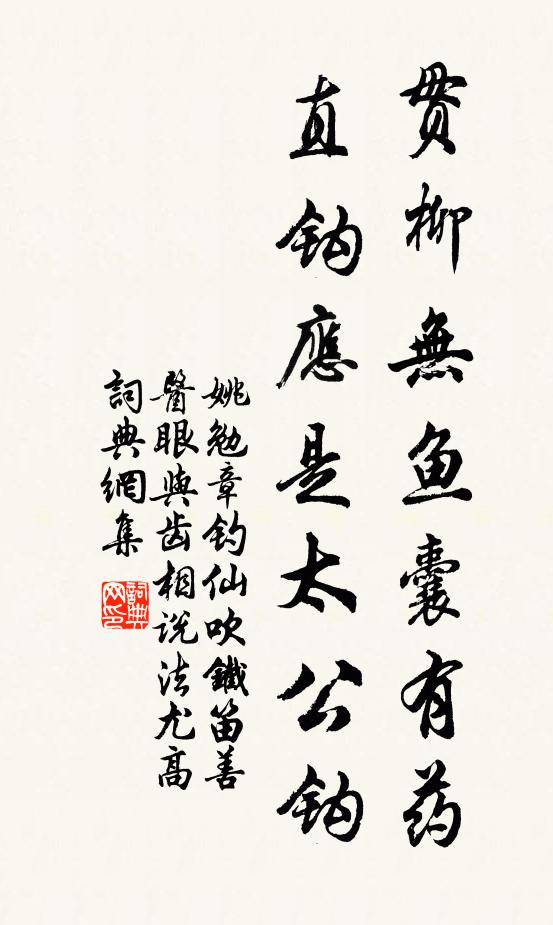 贯柳無鱼囊有药
直钩應是太公钩
姚勉章钓仙吹鐵笛善
醫眼與齒相说法尤高
詞典網集
詞典
网印